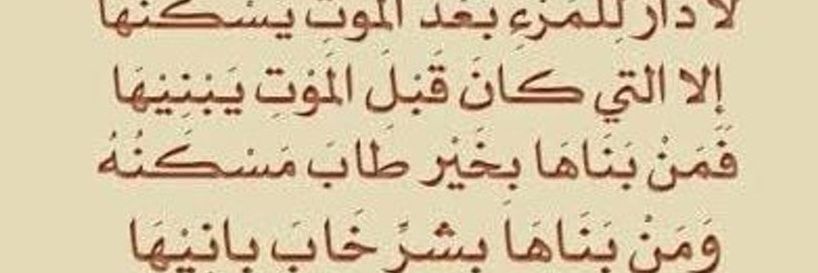 لا دار لِلمَرْءِ بَعْدَ المَوتِ يَسْكُنُها
إلا التي كانَ قَبْلَ المَوْتِ يَبْنِيْهَا
فَمَنْ بَنَاهَا بِخَيْر طَابَ مَسْكَنُهُ
وَمَنْ بَنَاهَا بِشرٍّ خَابَ بانِيْهَا